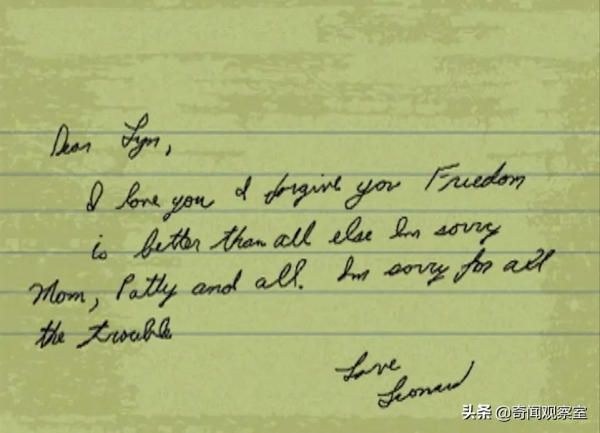 Dear Lyn,
I love you I forgive you Freedom
is better than all else Im sorry
Mom, Patty and all. Im sorry for all
the trouble
Love
Leonard
头条 @奇闻观察室